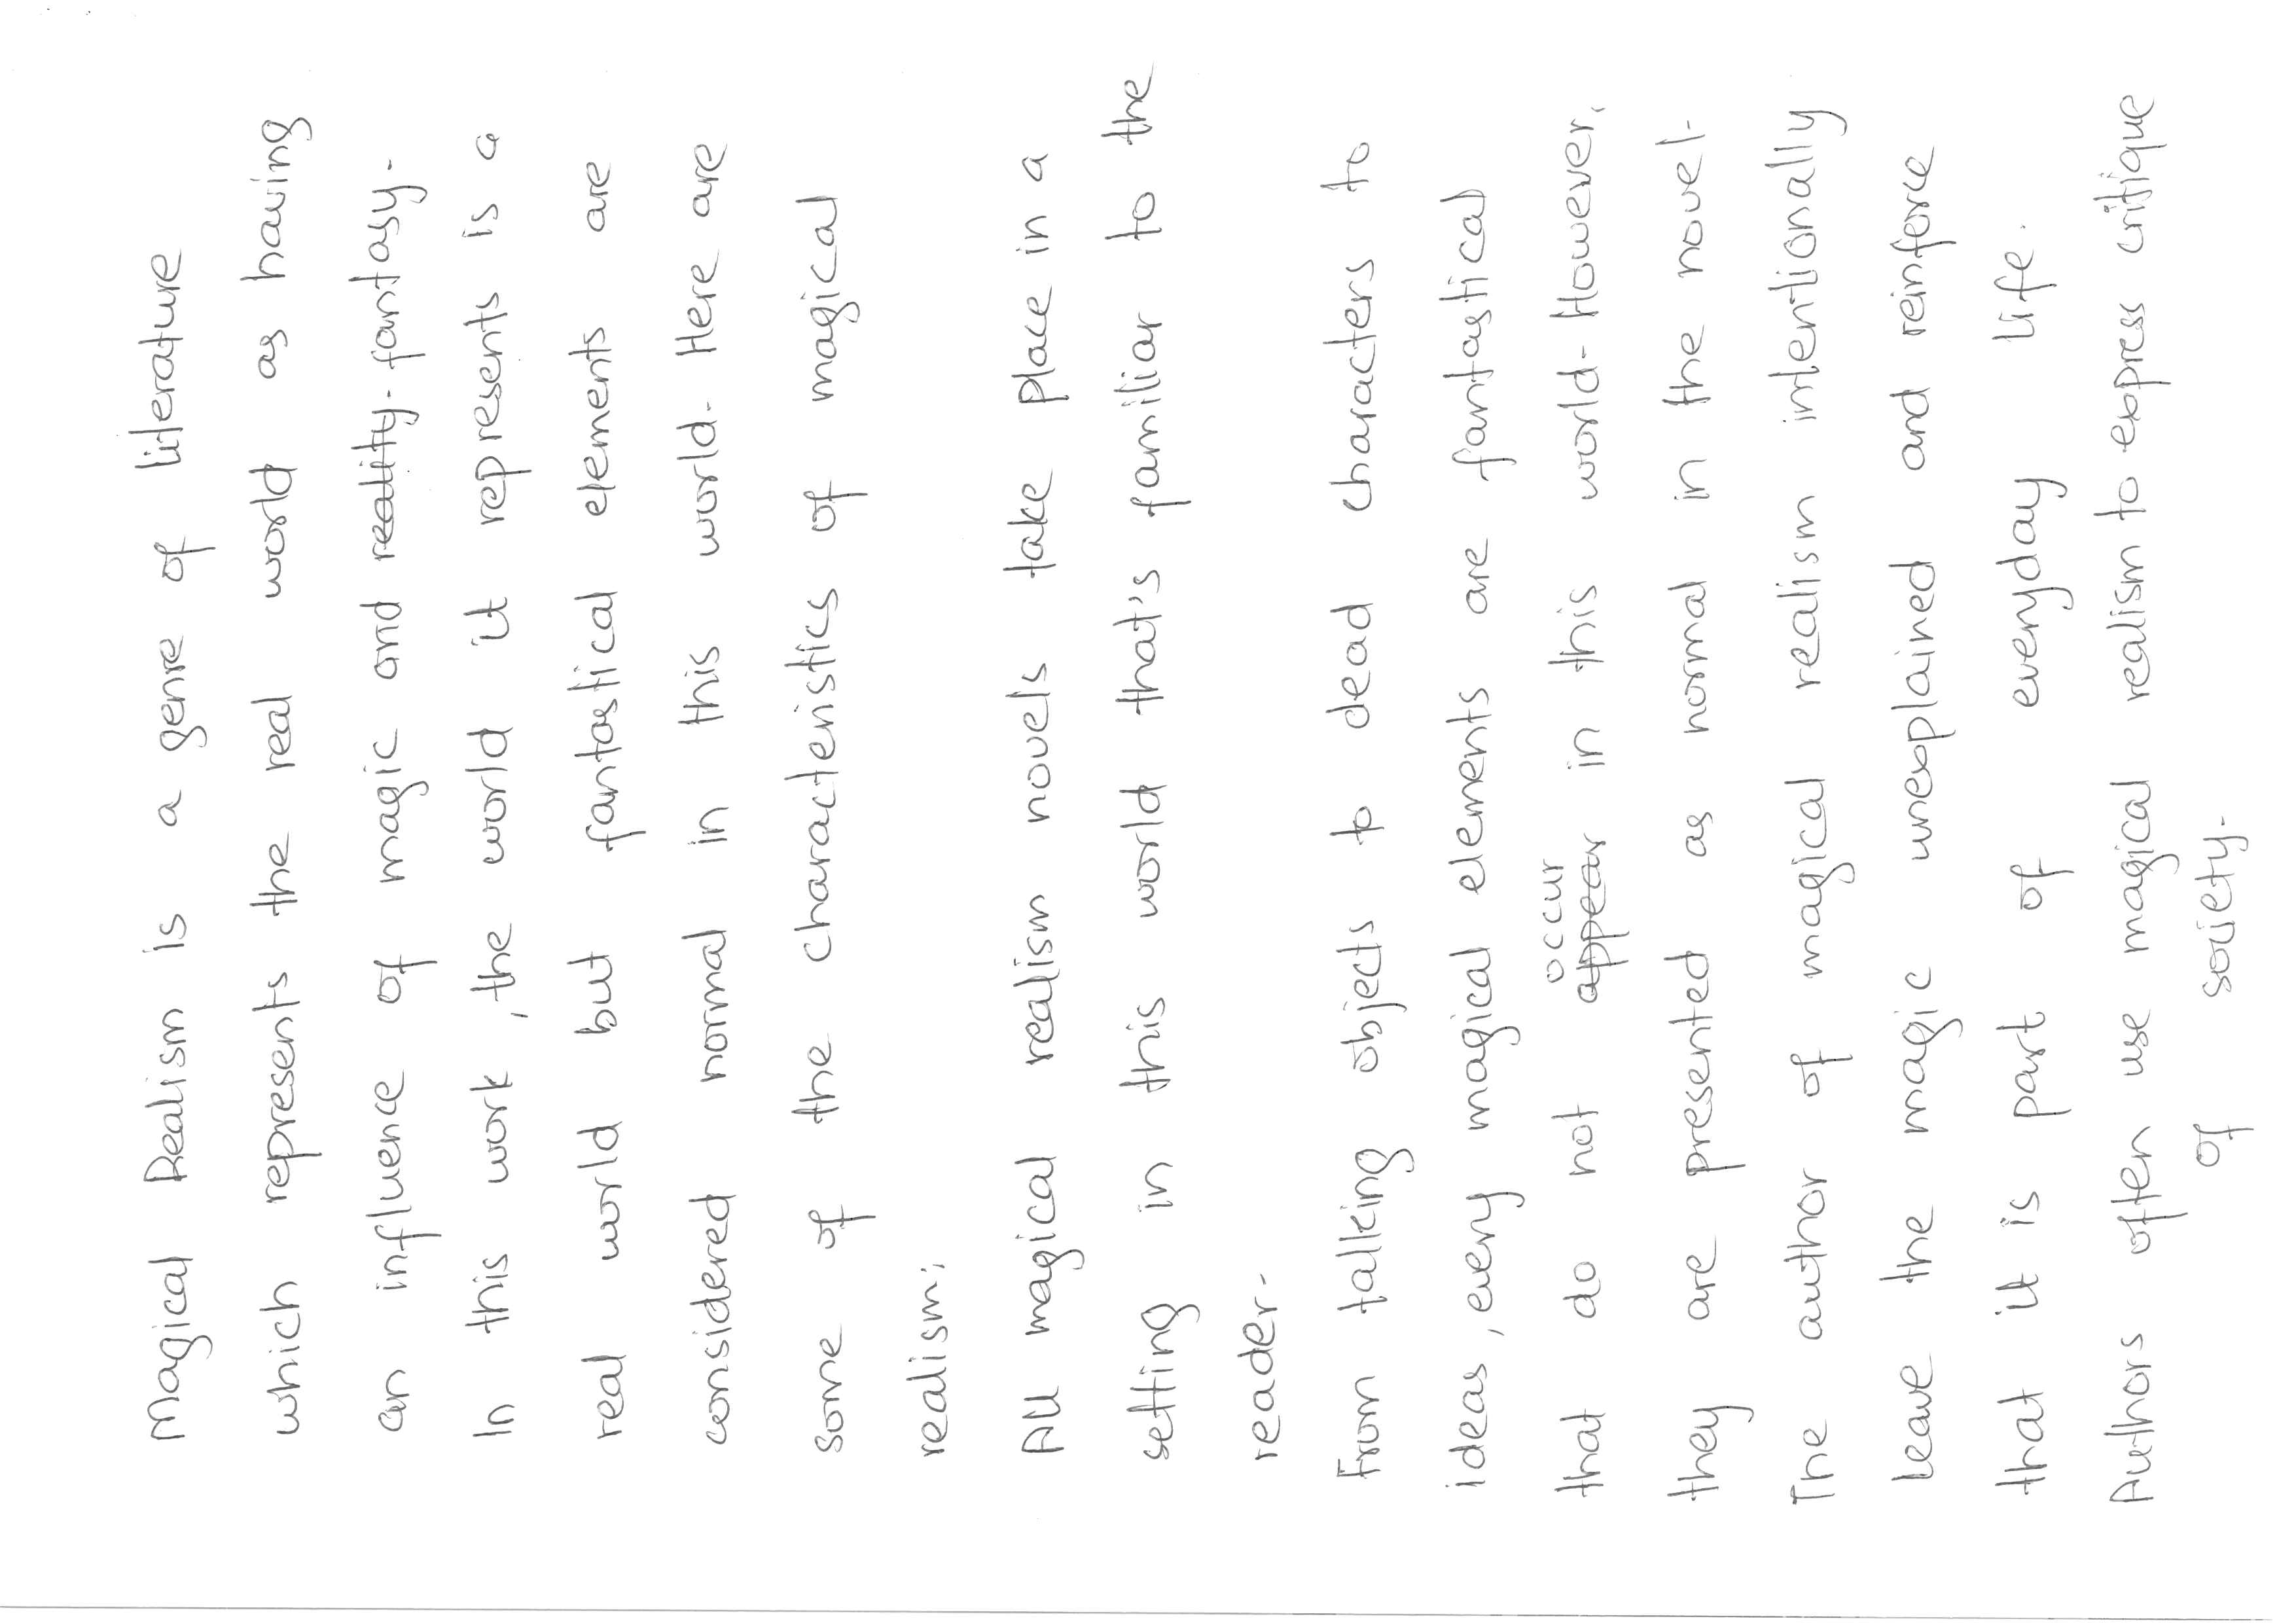 Magical Realism is a genre of literature
which represents the real world as having
an influence of magic and ~~reality.~~ fantasy.
In this work, the world it represents is a
real world but fantastical elements are
considered normal in this world. Here are
some of the characteristics of magical
realism;
All magical realism novels take place in a
setting in this world that's familiar to the
reader.
From talking objects to dead characters to
ideas, every magical elements are fantastical
that do not ~~appear~~ occur in this world. However,
they are presented as normal in the novel.
The author of magical realism intentionally
leave the magic unexplained and reinforce
that it is part of everyday life.
Authors often use magical realism to express critique
of society.